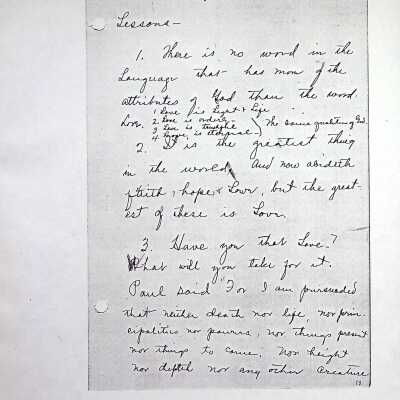 Lessons-
1. There is no word in the
Language that has more of the
attributes of God than the word
1 Love is Light & Life
Love. 2 Love is orderly
3 Love is truthful
4 Love is eternal
The same qualities of God.
2. It is the greatest thing
in the world, And now abideth
faith, hope & Love, but the great-
est of these is Love.
3. Have you that Love?
What will you take for it.
Paul said "For I am pursuaded
that neither death nor life, nor prin-
cipalities nor powers, nor things present
nor things to come. Nor height
nor depth nor any other creature